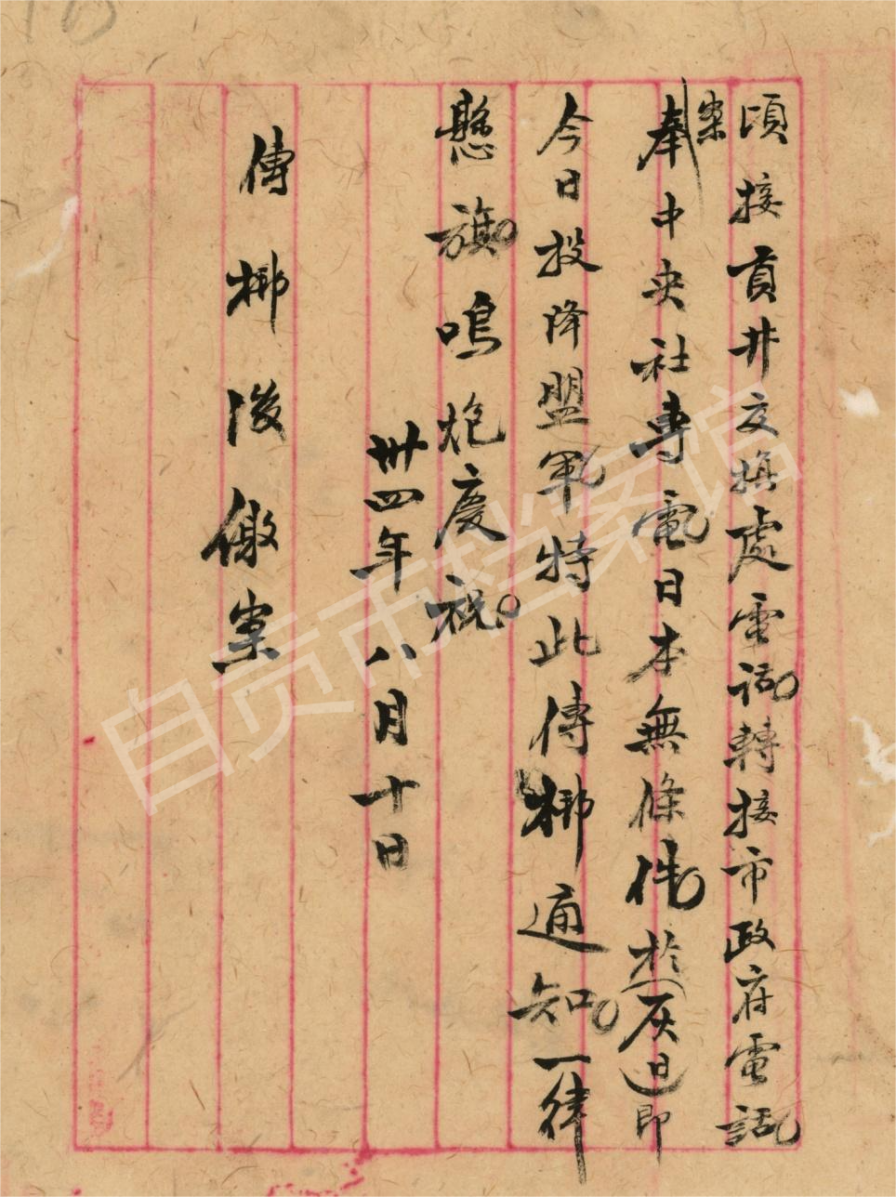 頃接貢井交換處電話轉接市政府電話
案奉中央社專電日本無條件於(灰日)即
今日投降盟軍特此傳梆通知一律
懸旗鳴炮慶祝
卅四年八月十日
傳梆後繳案
自贡市档案馆